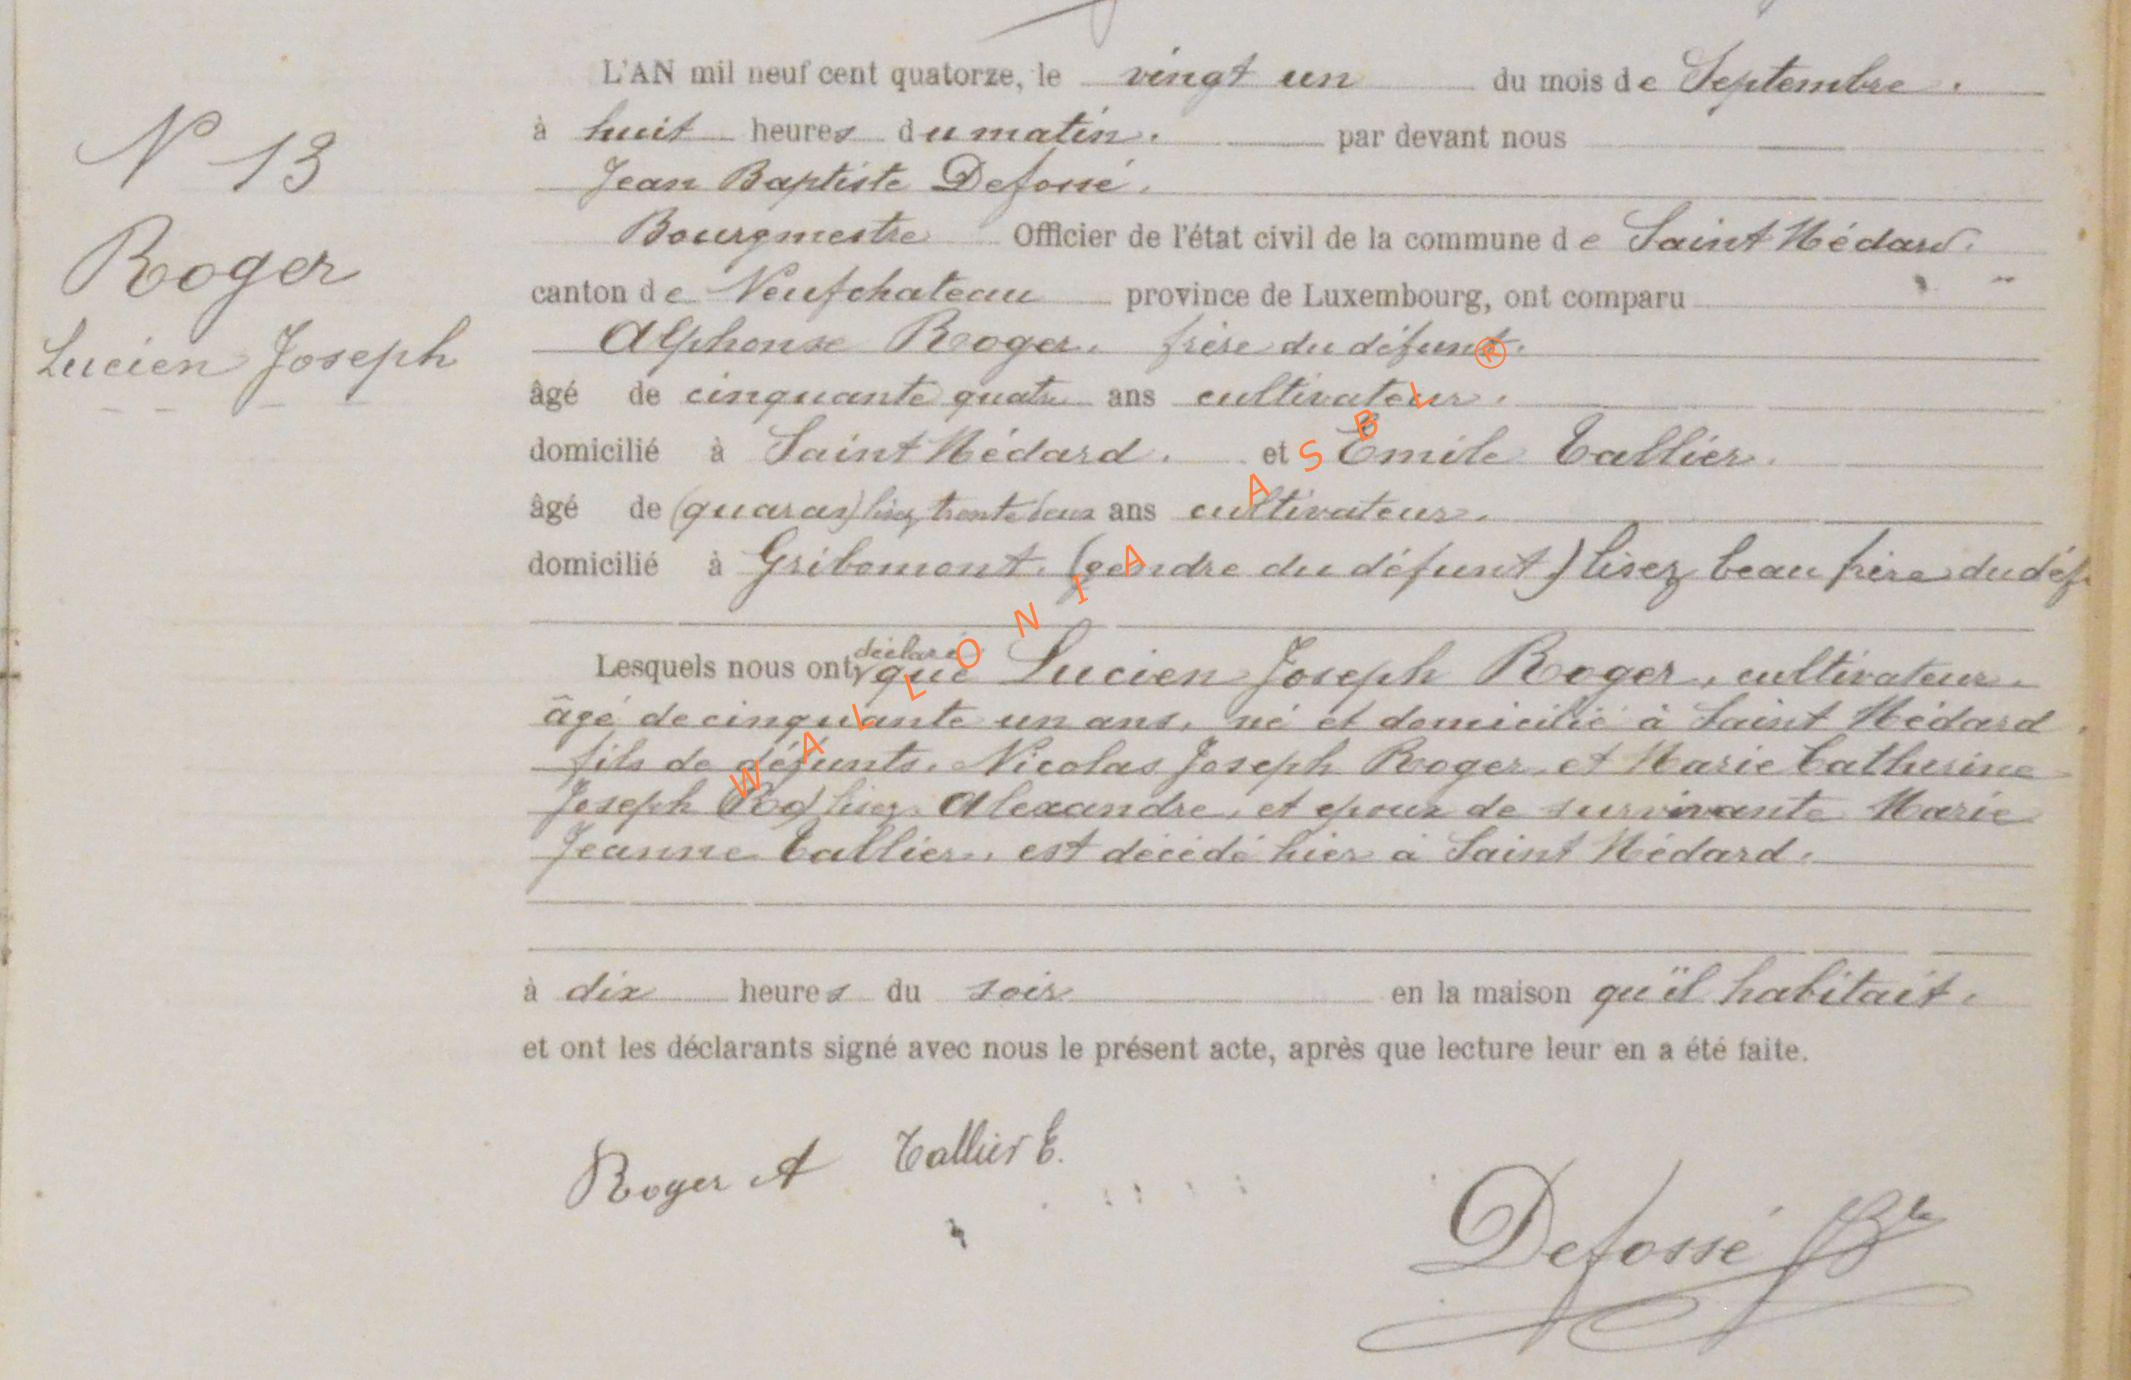 N° 13
Roger
Lucien Joseph
L'AN mil neuf cent quatorze, le vingt un du mois de Septembre.
à huit heures du matin. par devant nous
Jean Baptiste Defossé.
Bourgmestre Officier de l'état civil de la commune de Saint Médard.
canton de Neufchateau province de Luxembourg, ont comparu
Alphonse Roger. frère du défunt.
âgé de cinquante quatre ans cultivateur.
domicilié à Saint Médard. et Emile Tallier.
âgé de (quaran) lisez trente deux ans cultivateur.
domicilié à Gribomont. (gendre du défunt) lisez beau frère du déf
déclaré
Lesquels nous ont que Lucien Joseph Roger, cultivateur.
âgé de cinquante un ans, né et domicilié à Saint Médard.
fils de défunts. Nicolas Joseph Roger. et Marie Catherine
Joseph (Ro) lisez Alexandre, et epoux de survivante Marie
Jeanne Tallier. est décédé hier à Saint Médard.
à dix heures du soir en la maison qu'il habitait.
et ont les déclarants signé avec nous le présent acte, après que lecture leur en a été faite.
Roger A Tallier E.
Defossé JBte
WALLONIA ASBL ®